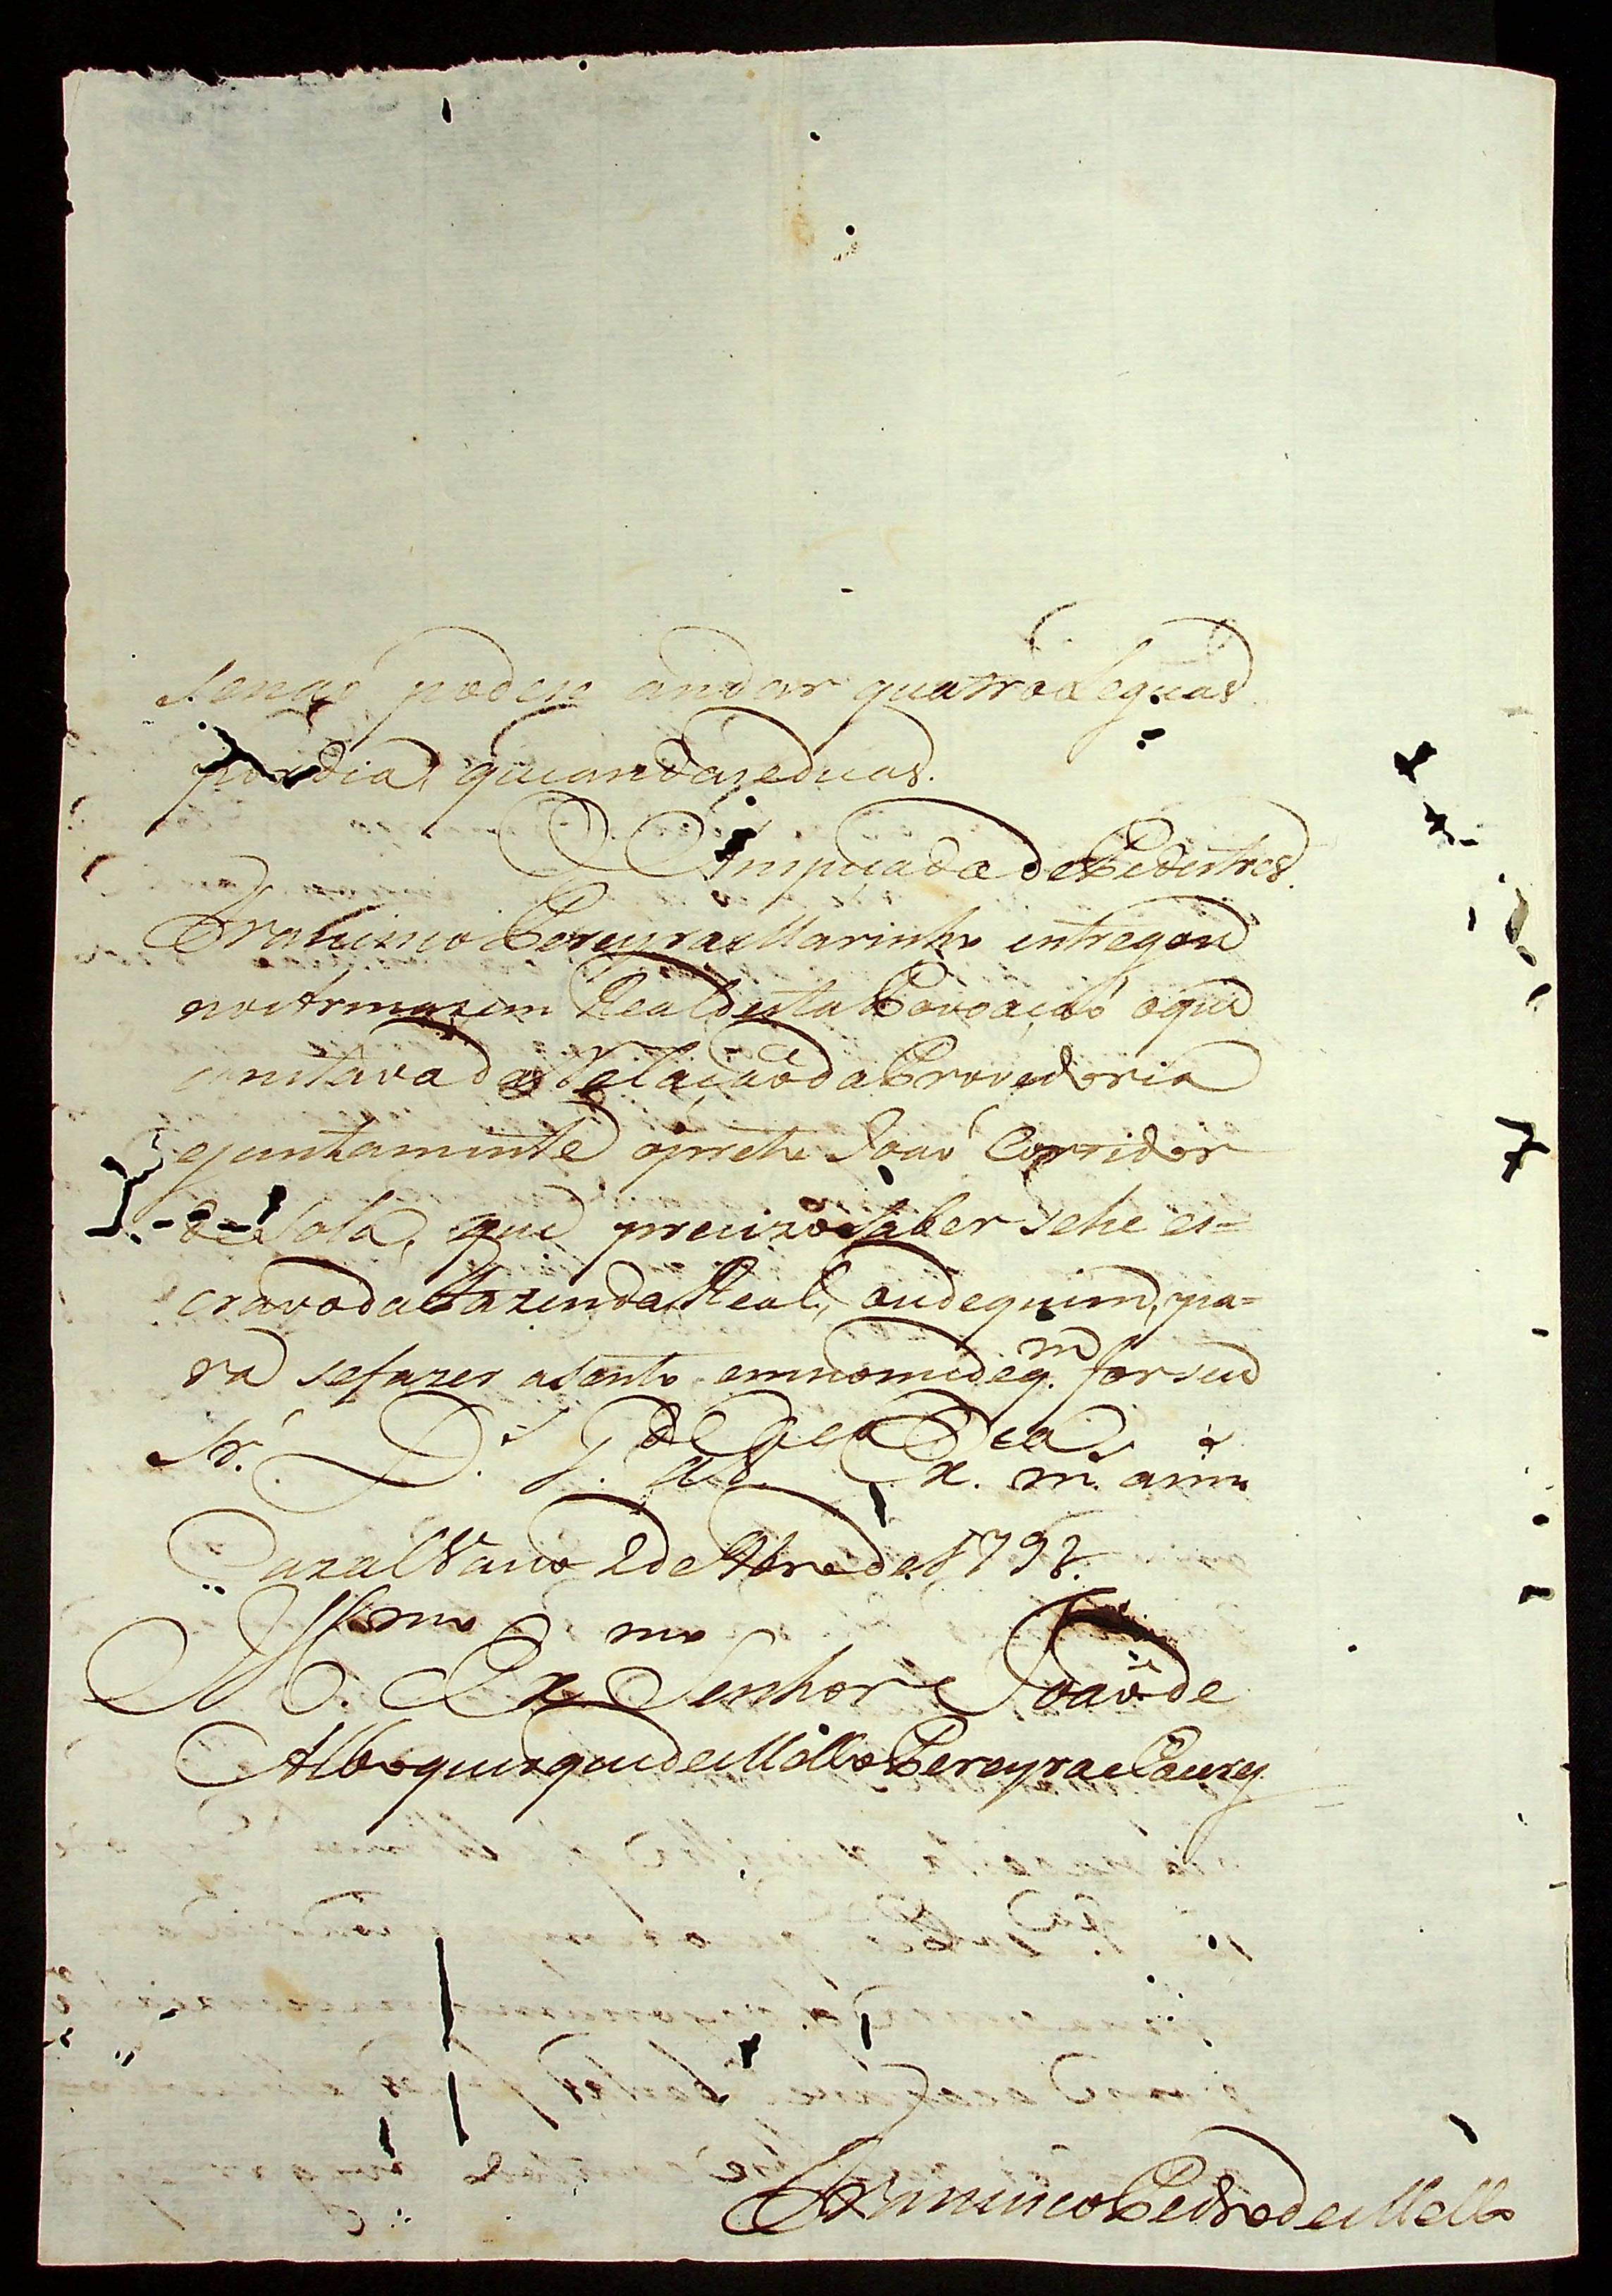 senaõ podese andar quatro Legoas
por dia, queandaseduas.
O Ampeçada de Pedestres
Francisco Pereyra Marinho entregou
no Armazem Real desta Povoaçaõ oque
constava da Relaçaõ da Provedoria
ejuntamente opreto Joaõ Corridor
de Sola, que precizo saber sehe es=
cravo da Fazenda Real, ou dequem, pa=
ra sefazer asento emnomedeq.m for seu
Sr. D.s g.de a V. Ex.ca m.s ann.s
Cazal Vasco 2 de Abr.o de 1792.
Ill.mo Ex.mo Senhor Joaõ de
Alboquerque de Mello Pereyra e Caceres
Francisco Pedro de Mello